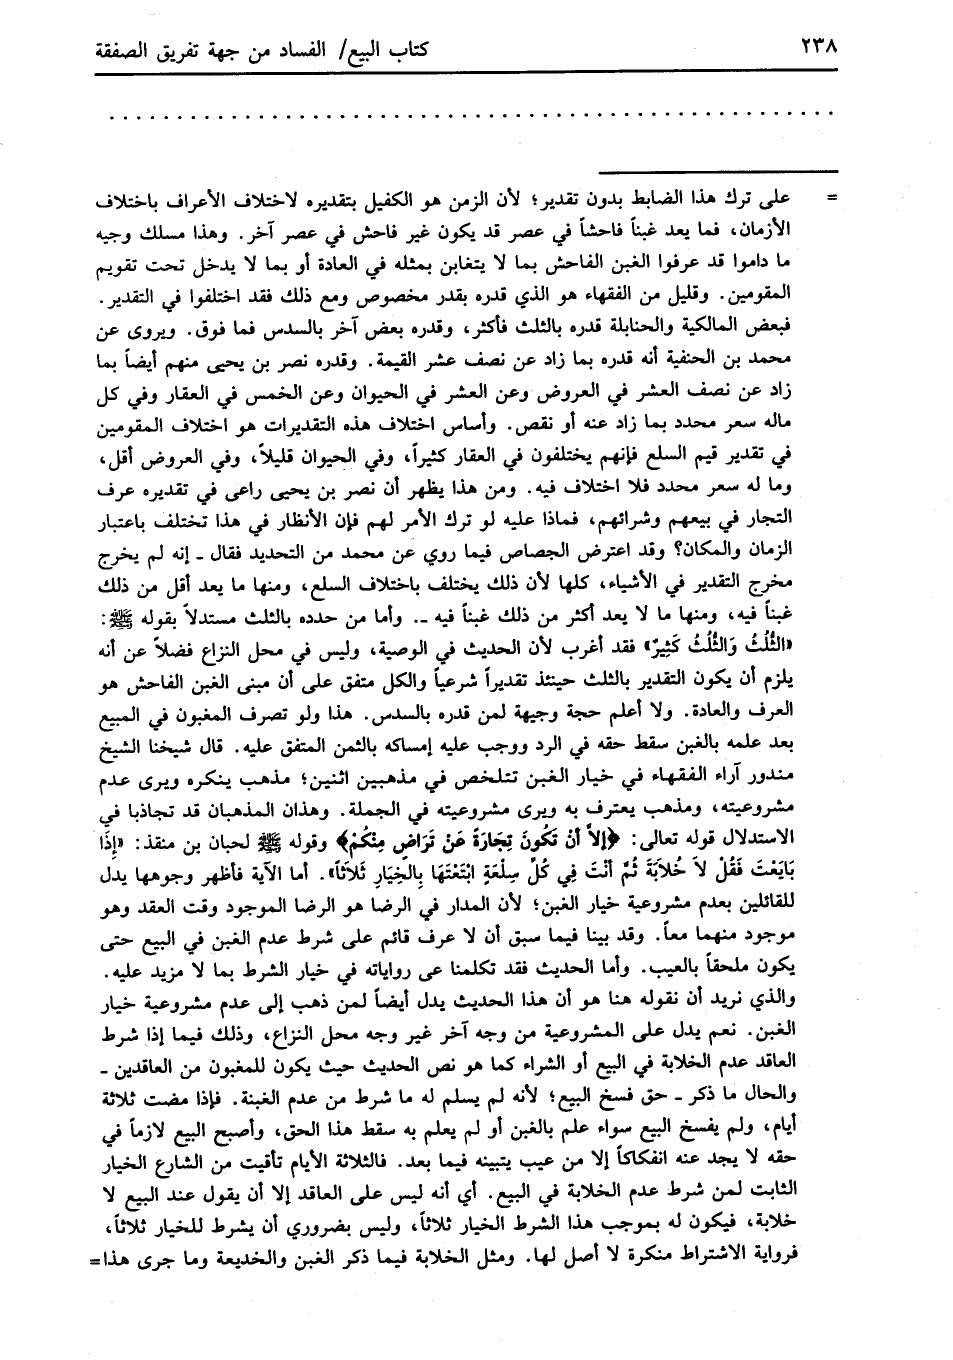 ٢٣٨
كتاب البيع/ الفساد من جهة تفريق الصفقة
= على ترك هذا الضابط بدون تقدير؛ لأن الزمن هو الكفيل بتقديره لاختلاف الأعراف باختلاف
الأزمان، فما يعد غبناً فاحشاً في عصر قد يكون غير فاحش في عصر آخر. وهذا مسلك وجيه
ما داموا قد عرفوا الغبن الفاحش بما لا يتغابن بمثله في العادة أو بما لا يدخل تحت تقويم
المقومين. وقليل من الفقهاء هو الذي قدره بقدر مخصوص ومع ذلك فقد اختلفوا في التقدير.
فبعض المالكية والحنابلة قدره بالثلث فأكثر، وقدره بعض آخر بالسدس فما فوق. ويروى عن
محمد بن الحنفية أنه قدره بما زاد عن نصف عشر القيمة. وقدره نصر بن يحيى منهم أيضاً بما
زاد عن نصف العشر في العروض وعن العشر في الحيوان وعن الخمس في العقار وفي كل
ماله سعر محدد بما زاد عنه أو نقص. وأساس اختلاف هذه التقديرات هو اختلاف المقومين
في تقدير قيم السلع فإنهم يختلفون في العقار كثيراً، وفي الحيوان قليلاً، وفي العروض أقل،
وما له سعر محدد فلا اختلاف فيه. ومن هذا يظهر أن نصر بن يحيى راعى في تقديره عرف
التجار في بيعهم وشرائهم، فماذا عليه لو ترك الأمر لهم فإن الأنظار في هذا تختلف باعتبار
الزمان والمكان؟ وقد اعترض الجصاص فيما روي عن محمد من التحديد فقال ـ إنه لم يخرج
مخرج التقدير في الأشياء، كلها لأن ذلك يختلف باختلاف السلع، ومنها ما يعد أقل من ذلك
غبناً فيه، ومنها ما لا يعد أكثر من ذلك غبناً فيه ـ. وأما من حدده بالثلث مستدلاً بقوله ﷺ:
«الثُّلُثُ وَالثُّلُثُ كَثِيرٌ» فقد أغرب لأن الحديث في الوصية، وليس في محل النزاع فضلاً عن أنه
يلزم أن يكون التقدير بالثلث حينئذ تقديراً شرعياً والكل متفق على أن مبنى الغبن الفاحش هو
العرف والعادة. ولا أعلم حجة وجيهة لمن قدره بالسدس. هذا ولو تصرف المغبون في المبيع
بعد علمه بالغبن سقط حقه في الرد ووجب عليه إمساكه بالثمن المتفق عليه. قال شيخنا الشيخ
مندور آراء الفقهاء في خيار الغبن تتلخص في مذهبين اثنين؛ مذهب ينكره ويرى عدم
مشروعيته، ومذهب يعترف به ويرى مشروعيته في الجملة. وهذان المذهبان قد تجاذبا في
الاستدلال قوله تعالى: ﴿إِلاَّ أَنْ تَكُونَ تِجَارَةً عَنْ تَرَاضٍ مِنْكُمْ﴾ وقوله ﷺ لحبان بن منقذ: «إِذَا
بَايَعْتَ فَقُلْ لاَ خُلاَبَةَ ثُمَّ أَنْتَ فِي كُلِّ سِلْعَةٍ ابْتَعْتَهَا بِالخِيَارِ ثَلاَثاً». أما الآية فأظهر وجوهها يدل
للقائلين بعدم مشروعية خيار الغبن؛ لأن المدار في الرضا هو الرضا الموجود وقت العقد وهو
موجود منهما معاً. وقد بينا فيما سبق أن لا عرف قائم على شرط عدم الغبن في البيع حتى
يكون ملحقاً بالعيب. وأما الحديث فقد تكلمنا عى رواياته في خيار الشرط بما لا مزيد عليه.
والذي نريد أن نقوله هنا هو أن هذا الحديث يدل أيضاً لمن ذهب إلى عدم مشروعية خيار
الغبن. نعم يدل على المشروعية من وجه آخر غير وجه محل النزاع، وذلك فيما إذا شرط
العاقد عدم الخلابة في البيع أو الشراء كما هو نص الحديث حيث يكون للمغبون من العاقدين ـ
والحال ما ذكر ـ حق فسخ البيع؛ لأنه لم يسلم له ما شرط من عدم الغبنة. فإذا مضت ثلاثة
أيام، ولم يفسخ البيع سواء علم بالغبن أو لم يعلم به سقط هذا الحق، وأصبح البيع لازماً في
حقه لا يجد عنه انفكاكاً إلا من عيب يتبينه فيما بعد. فالثلاثة الأيام تأقيت من الشارع الخيار
الثابت لمن شرط عدم الخلابة في البيع. أي أنه ليس على العاقد إلا أن يقول عند البيع لا
خلابة، فيكون له بموجب هذا الشرط الخيار ثلاثاً، وليس بضروري أن يشرط للخيار ثلاثاً،
فرواية الاشتراط منكرة لا أصل لها. ومثل الخلابة فيما ذكر الغبن والخديعة وما جرى هذا=